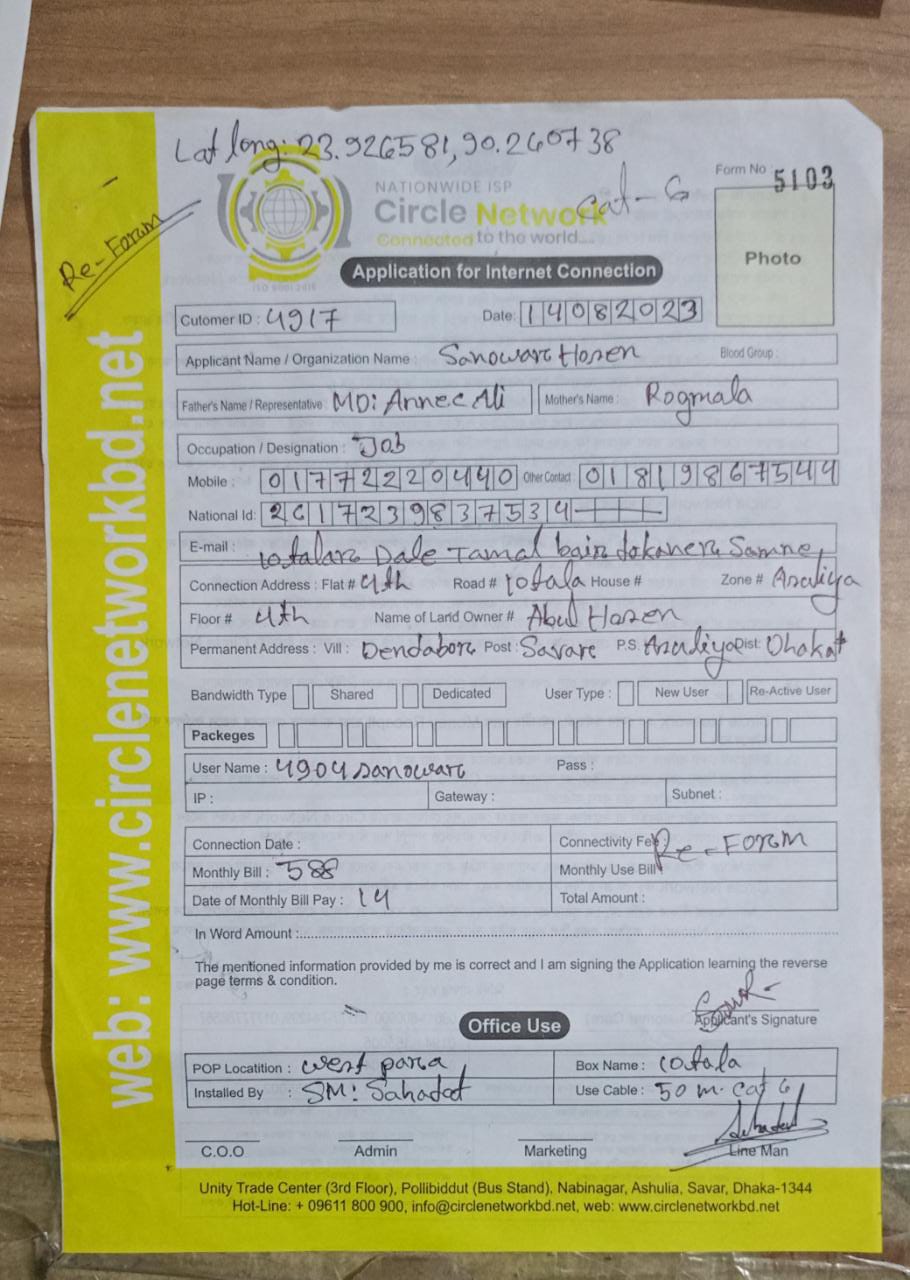 Lat long: 23.926581, 90.260738
Re-Foram
NATIONWIDE ISP
Cat-6
Circle Network
Connected to the world...
ISO 9001:2015
Form No : 5103
Photo
Application for Internet Connection
Cutomer ID : 4917 Date: 14082023
Applicant Name / Organization Name : Sanowar Hosen Blood Group :
Father's Name / Representative : MD: Annec Ali Mother's Name : Rogmala
Occupation / Designation : Job
Mobile : 01772220440 Other Contact : 01819867544
National Id: 2617239837534
E-mail : 10talar Dale Tamal bair dokaner Samne,
Connection Address : Flat # 4th Road # 10tala House # Zone # Asuliya
Floor # 4th Name of Land Owner # Abul Hosen
Permanent Address : Vill : Dendabor Post : Savar P.S. Asuliya Dist: Dhaka
Bandwidth Type Shared Dedicated User Type : New User Re-Active User
Packeges
User Name : 4904sanowar Pass :
IP : Gateway : Subnet :
Connection Date : Connectivity Fee : Re-Foram
Monthly Bill : 588 Monthly Use Bill
Date of Monthly Bill Pay : 14 Total Amount :
In Word Amount :
The mentioned information provided by me is correct and I am signing the Application learning the reverse
page terms & condition.
Applicant's Signature
Office Use
POP Locatition : west para Box Name : 10tala
Installed By : SM: Sahadat Use Cable : 50 m. cat 6
C.O.O Admin Marketing Line Man
Unity Trade Center (3rd Floor), Pollibiddut (Bus Stand), Nabinagar, Ashulia, Savar, Dhaka-1344
Hot-Line: + 09611 800 900, info@circlenetworkbd.net, web: www.circlenetworkbd.net
web: www.circlenetworkbd.net